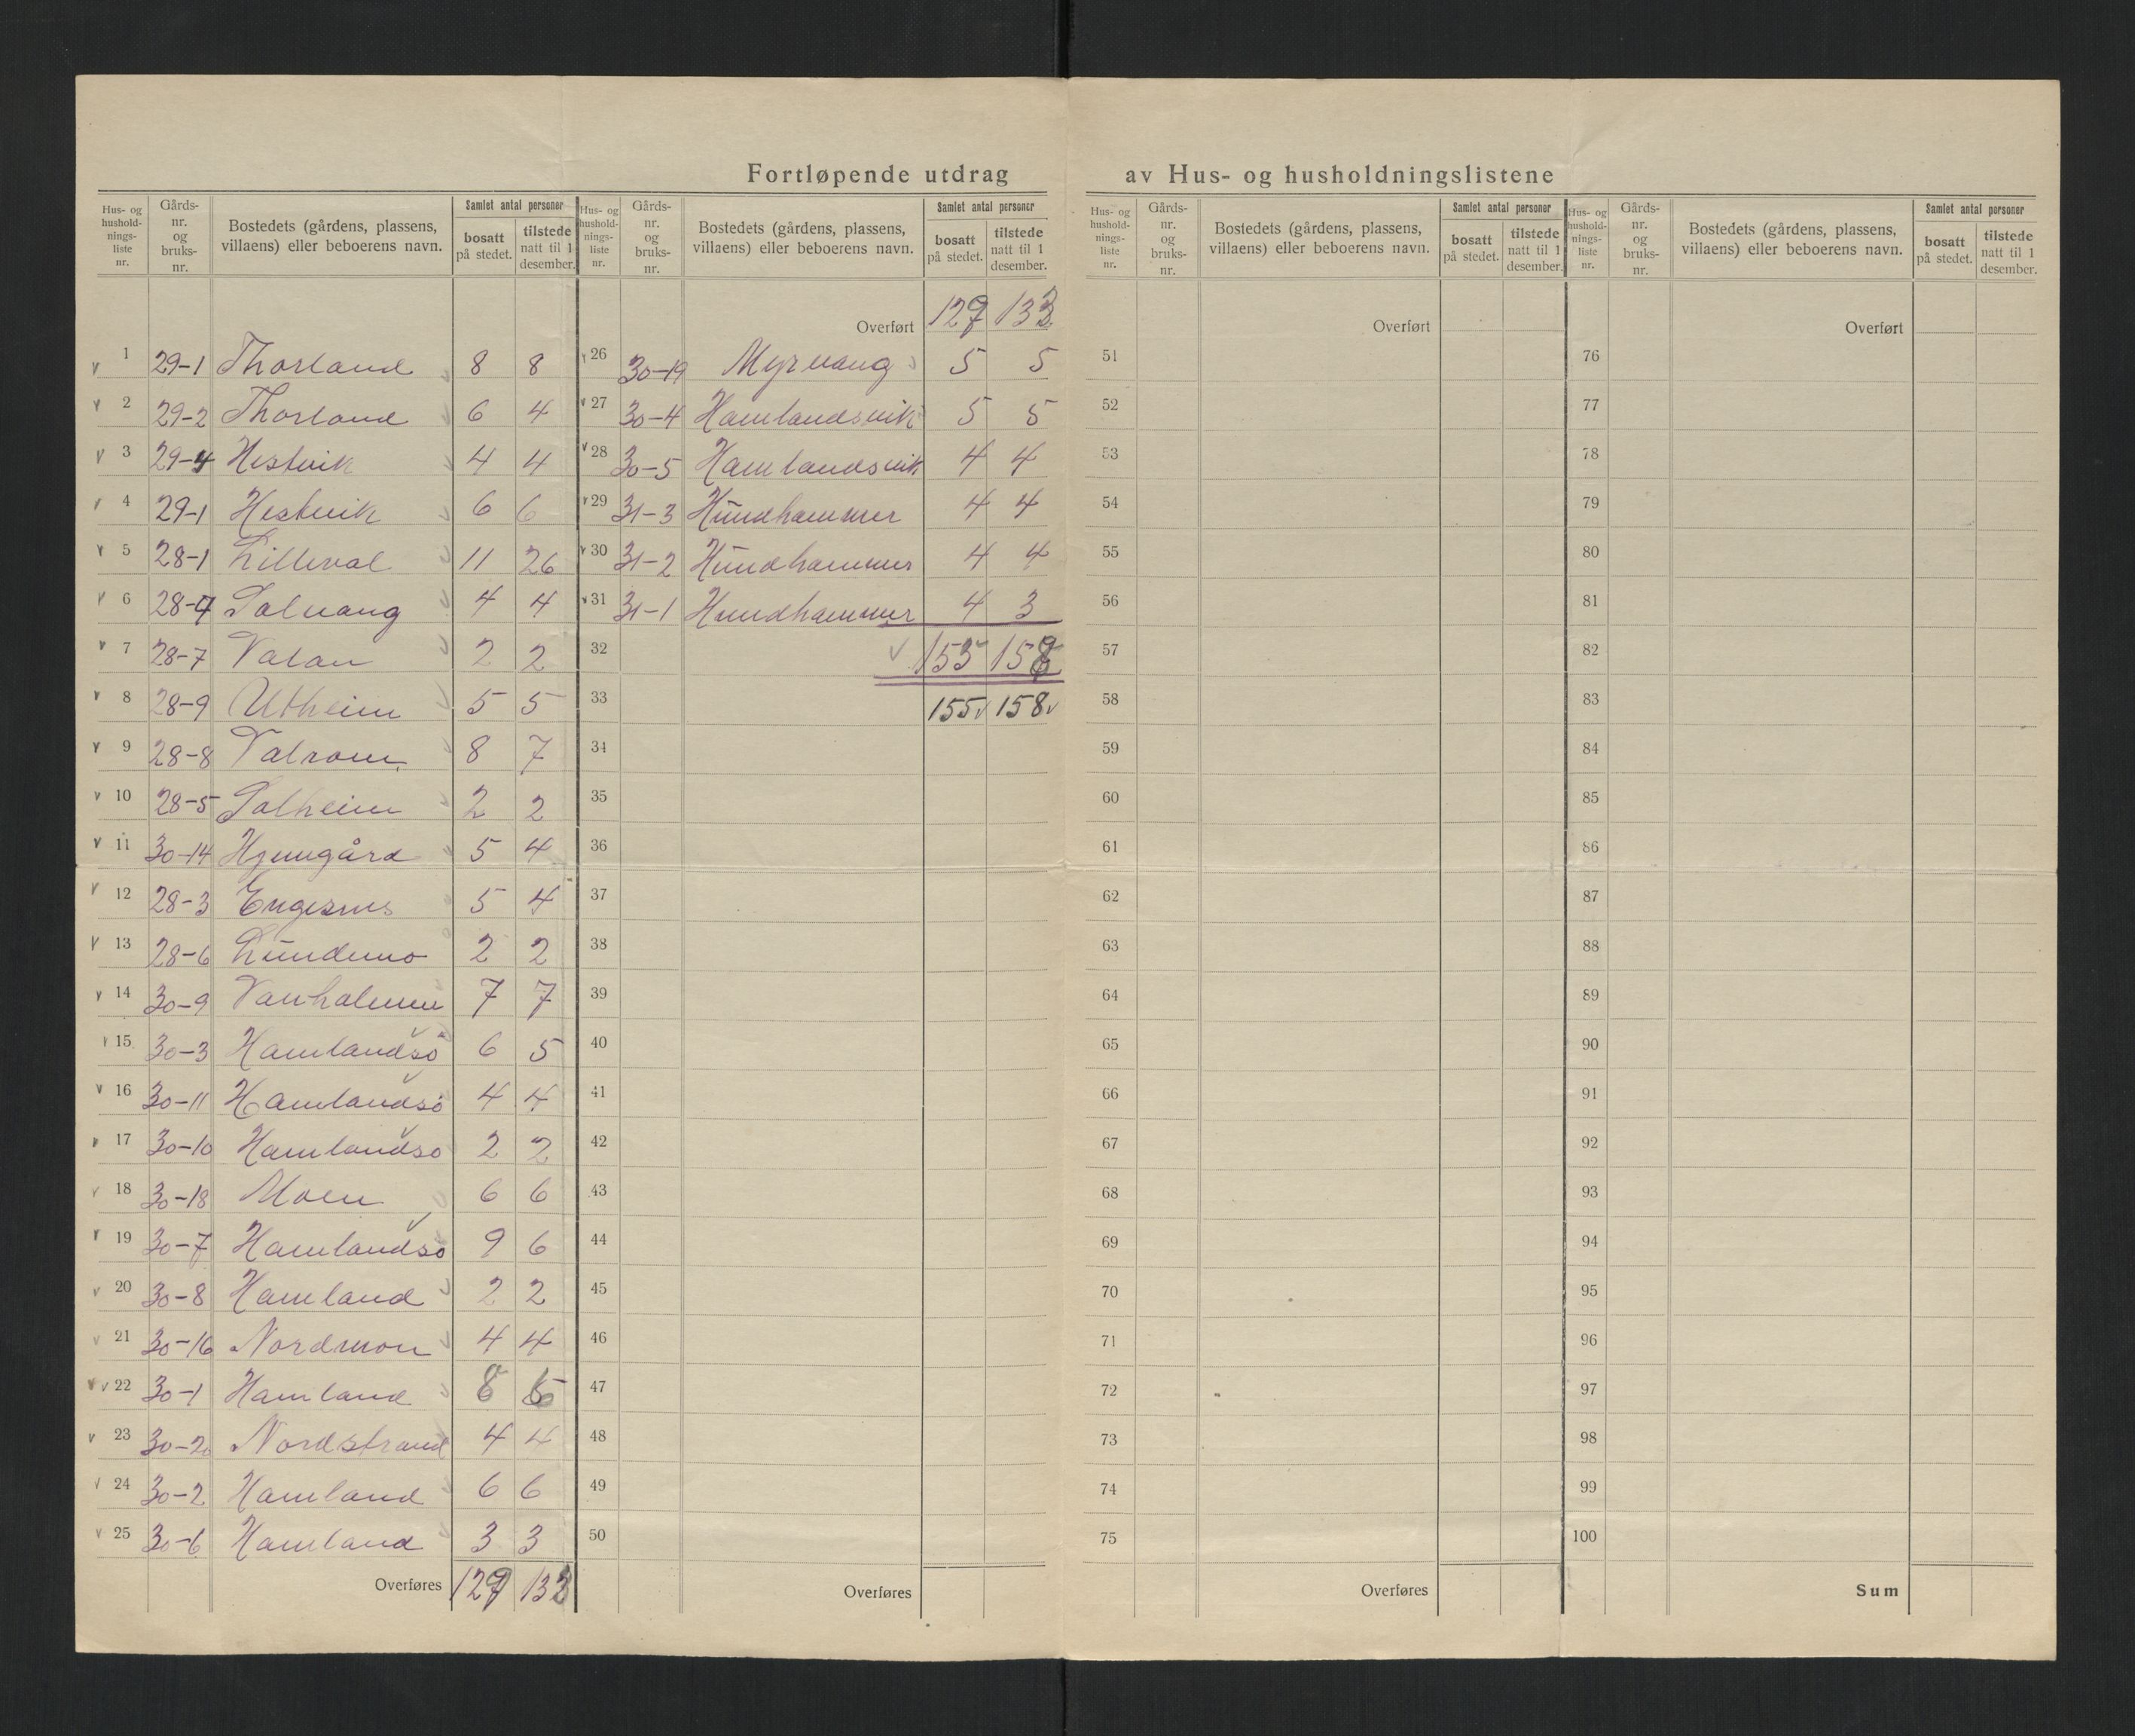 Fortløpende utdrag av Hus- og husholdningslistene
Hus- og hushold-nings-liste nr. Gårds-nr. og bruks-nr. Bostedets (gårdens, plassens, villaens) eller beboerens navn. Samlet antal personer bosatt på stedet. tilstede natt til 1 desember.
1 29-1 Thorland 8 8
2 29-2 Thorland 6 4
3 29-4 Hestvik 4 4
4 29-1 Hestvik 6 6
5 28-1 Lilleval 11 26
6 28-4 Solvang 4 4
7 28-7 Valan 2 2
8 28-9 Utheim 5 5
9 28-8 Valrom 8 7
10 28-5 Solheim 2 2
11 30-14 Hjemgård 5 4
12 28-3 Engesnes 5 4
13 28-6 Lundemo 2 2
14 30-9 Vanholmen 7 7
15 30-3 Hamlandsö 6 5
16 30-11 Hamlandsö 4 4
17 30-10 Hamlandsö 2 2
18 30-18 Moen 6 6
19 30-7 Hamlandsö 9 6
20 30-8 Hamland 2 2
21 30-16 Nordmon 4 4
22 30-1 Hamland
23 30-20 Nordstrand 4 4
24 30-2 Hamland 6 6
25 30-6 Hamland 3 3
Overføres 127 132
Hus- og hushold-nings-liste nr. Gårds-nr. og bruks-nr. Bostedets (gårdens, plassens, villaens) eller beboerens navn. Samlet antal personer bosatt på stedet. tilstede natt til 1 desember.
Overført 127 133
26 30-19 Myrvang 5 5
27 30-4 Hamlandsvik 5 5
28 30-5 Hamlandsvik 4 4
29 31-3 Hundhammer 4 4
30 31-2 Hundhammer 4 4
31 31-1 Hundhammer 4 3
32 153 158
33 155 158
34
35
36
37
38
39
40
41
42
43
44
45
46
47
48
49
50
Overføres
Hus- og hushold-nings-liste nr. Gårds-nr. og bruks-nr. Bostedets (gårdens, plassens, villaens) eller beboerens navn. Samlet antal personer bosatt på stedet. tilstede natt til 1 desember.
Overført
51
52
53
54
55
56
57
58
59
60
61
62
63
64
65
66
67
68
69
70
71
72
73
74
75
Overføres
Hus- og hushold-nings-liste nr. Gårds-nr. og bruks-nr. Bostedets (gårdens, plassens, villaens) eller beboerens navn. Samlet antal personer bosatt på stedet. tilstede natt til 1 desember.
Overført
76
77
78
79
80
81
82
83
84
85
86
87
88
89
90
91
92
93
94
95
96
97
98
99
100
Sum